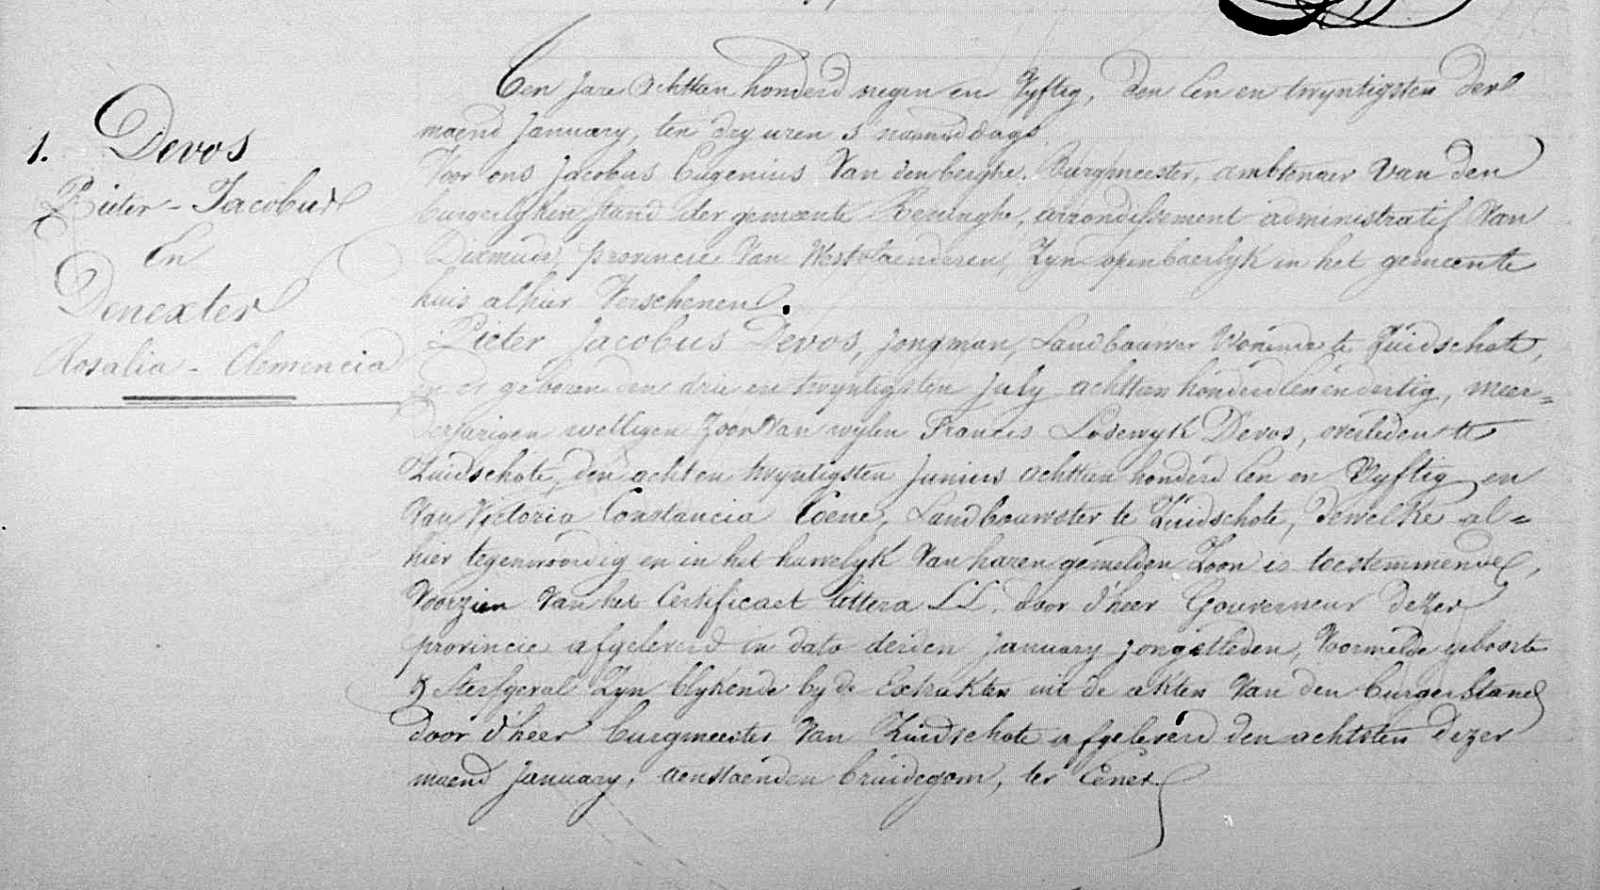 1. Devos
Pieter - Jacobus
En
Denexter
Rosalia - Clemencia
Ten jare Achttien honderd negen en Vyftig, den Een en twyntigsten der
maend January, ten dry uren 's naermiddags,
Voor ons Jacobus Eugenius Van den berghe, Burgmeester, ambtenaer van den
burgerlyken stand der gemeente Reninghe, arrondissement administratif Van
Dixmude, provincie Van Westvlaenderen, Zyn openbaerlyk in het gemeente
huis alhier Verschenen.
Pieter Jacobus Devos, jongman, Landbouwer Wonende te Zuidschote,
geboren den drie en twyntigsten July achttien honderd een en dertig, meer=
derjarigen wettigen Zoon Van wylen Francis Lodewyk Devos, overleden te
Zuidschote, den acht en twyntigsten Junius achttien honderd een en Vyftig en
Van Victoria Constancia Coene, Landbouwster te Zuidschote, dewelke al=
hier tegenwoordig en in het huwelyk Van haren gemelden Zoon is toestemmende,
Voorzien Van het Certificaet littera LL. door d'heer Gouverneur dezer
provincie afgeleverd in dato derden January jongstleden, Voormelde geboorte
& Sterfgeval Zyn blykende by de Extrakten uit de akten Van den burgerstand
door d'heer burgmeester Van Zuidschote afgeleverd den achtsten dezer
maend January, aenstaenden bruidegom, ter Eener